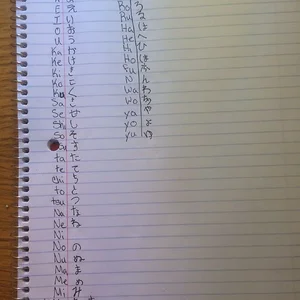 E え
I い
O お
U う
Ka か
Ke け
Ki き
Ko こ
Ku く
Sa さ
Se せ
Shi し
So そ
す
ta た
te て
chi ち
to と
tsu つ
Na な
Ne ね
Ni
No の
Nu ぬ
Ma ま
Me め
Mi み
Ro ろ
Ru る
Ha は
He へ
Hi ひ
Ho ほ
Fu ふ
N ん
Wa わ
Wo を
ya や
yo よ
yu ゆ